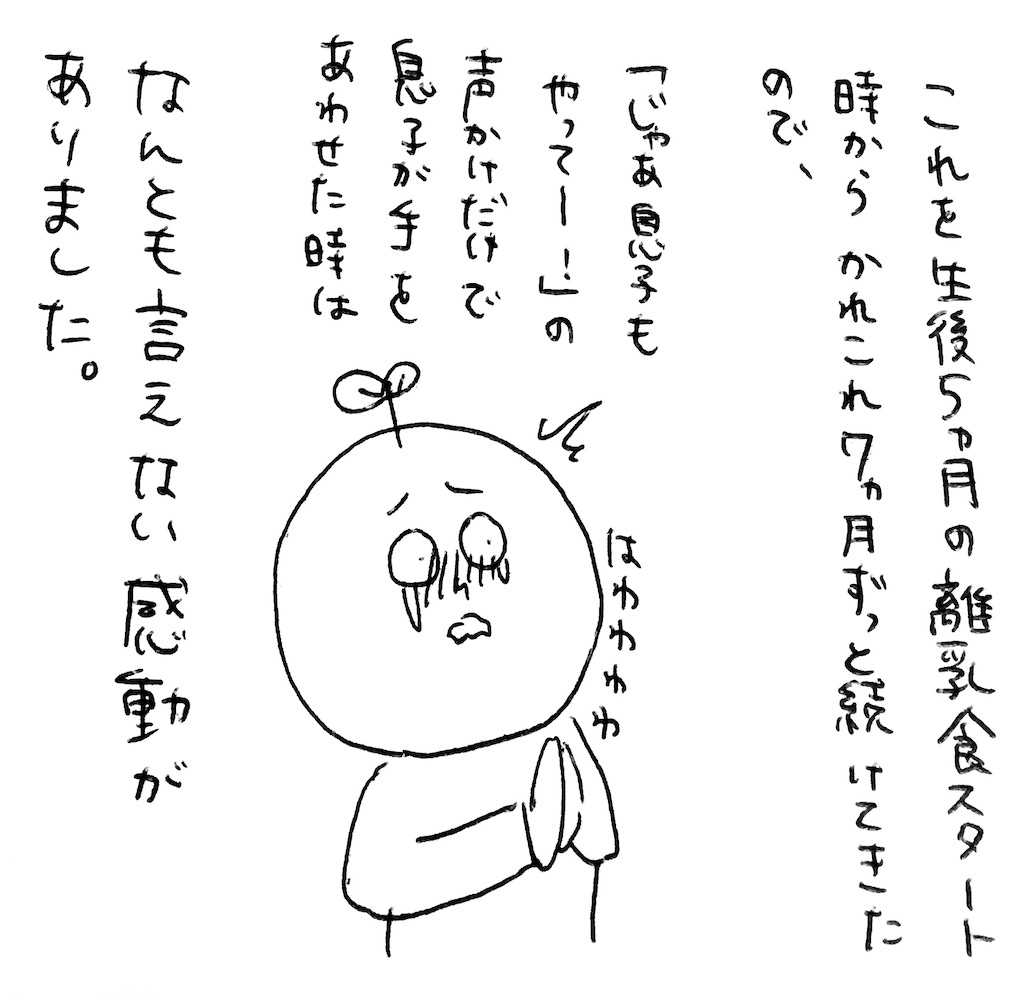 これを生後5ヵ月の離乳食スタート
時から かれこれ7ヵ月ずっと続けてきた
ので、
「じゃあ息子も
やってー！」の
声かけだけで
息子が手を
あわせた時は
はわわわわ
なんとも言えない感動が
ありました。